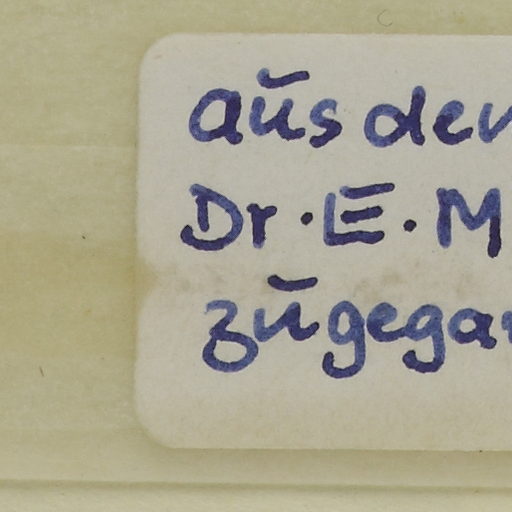 aus den
Dr. E. M
zugegan